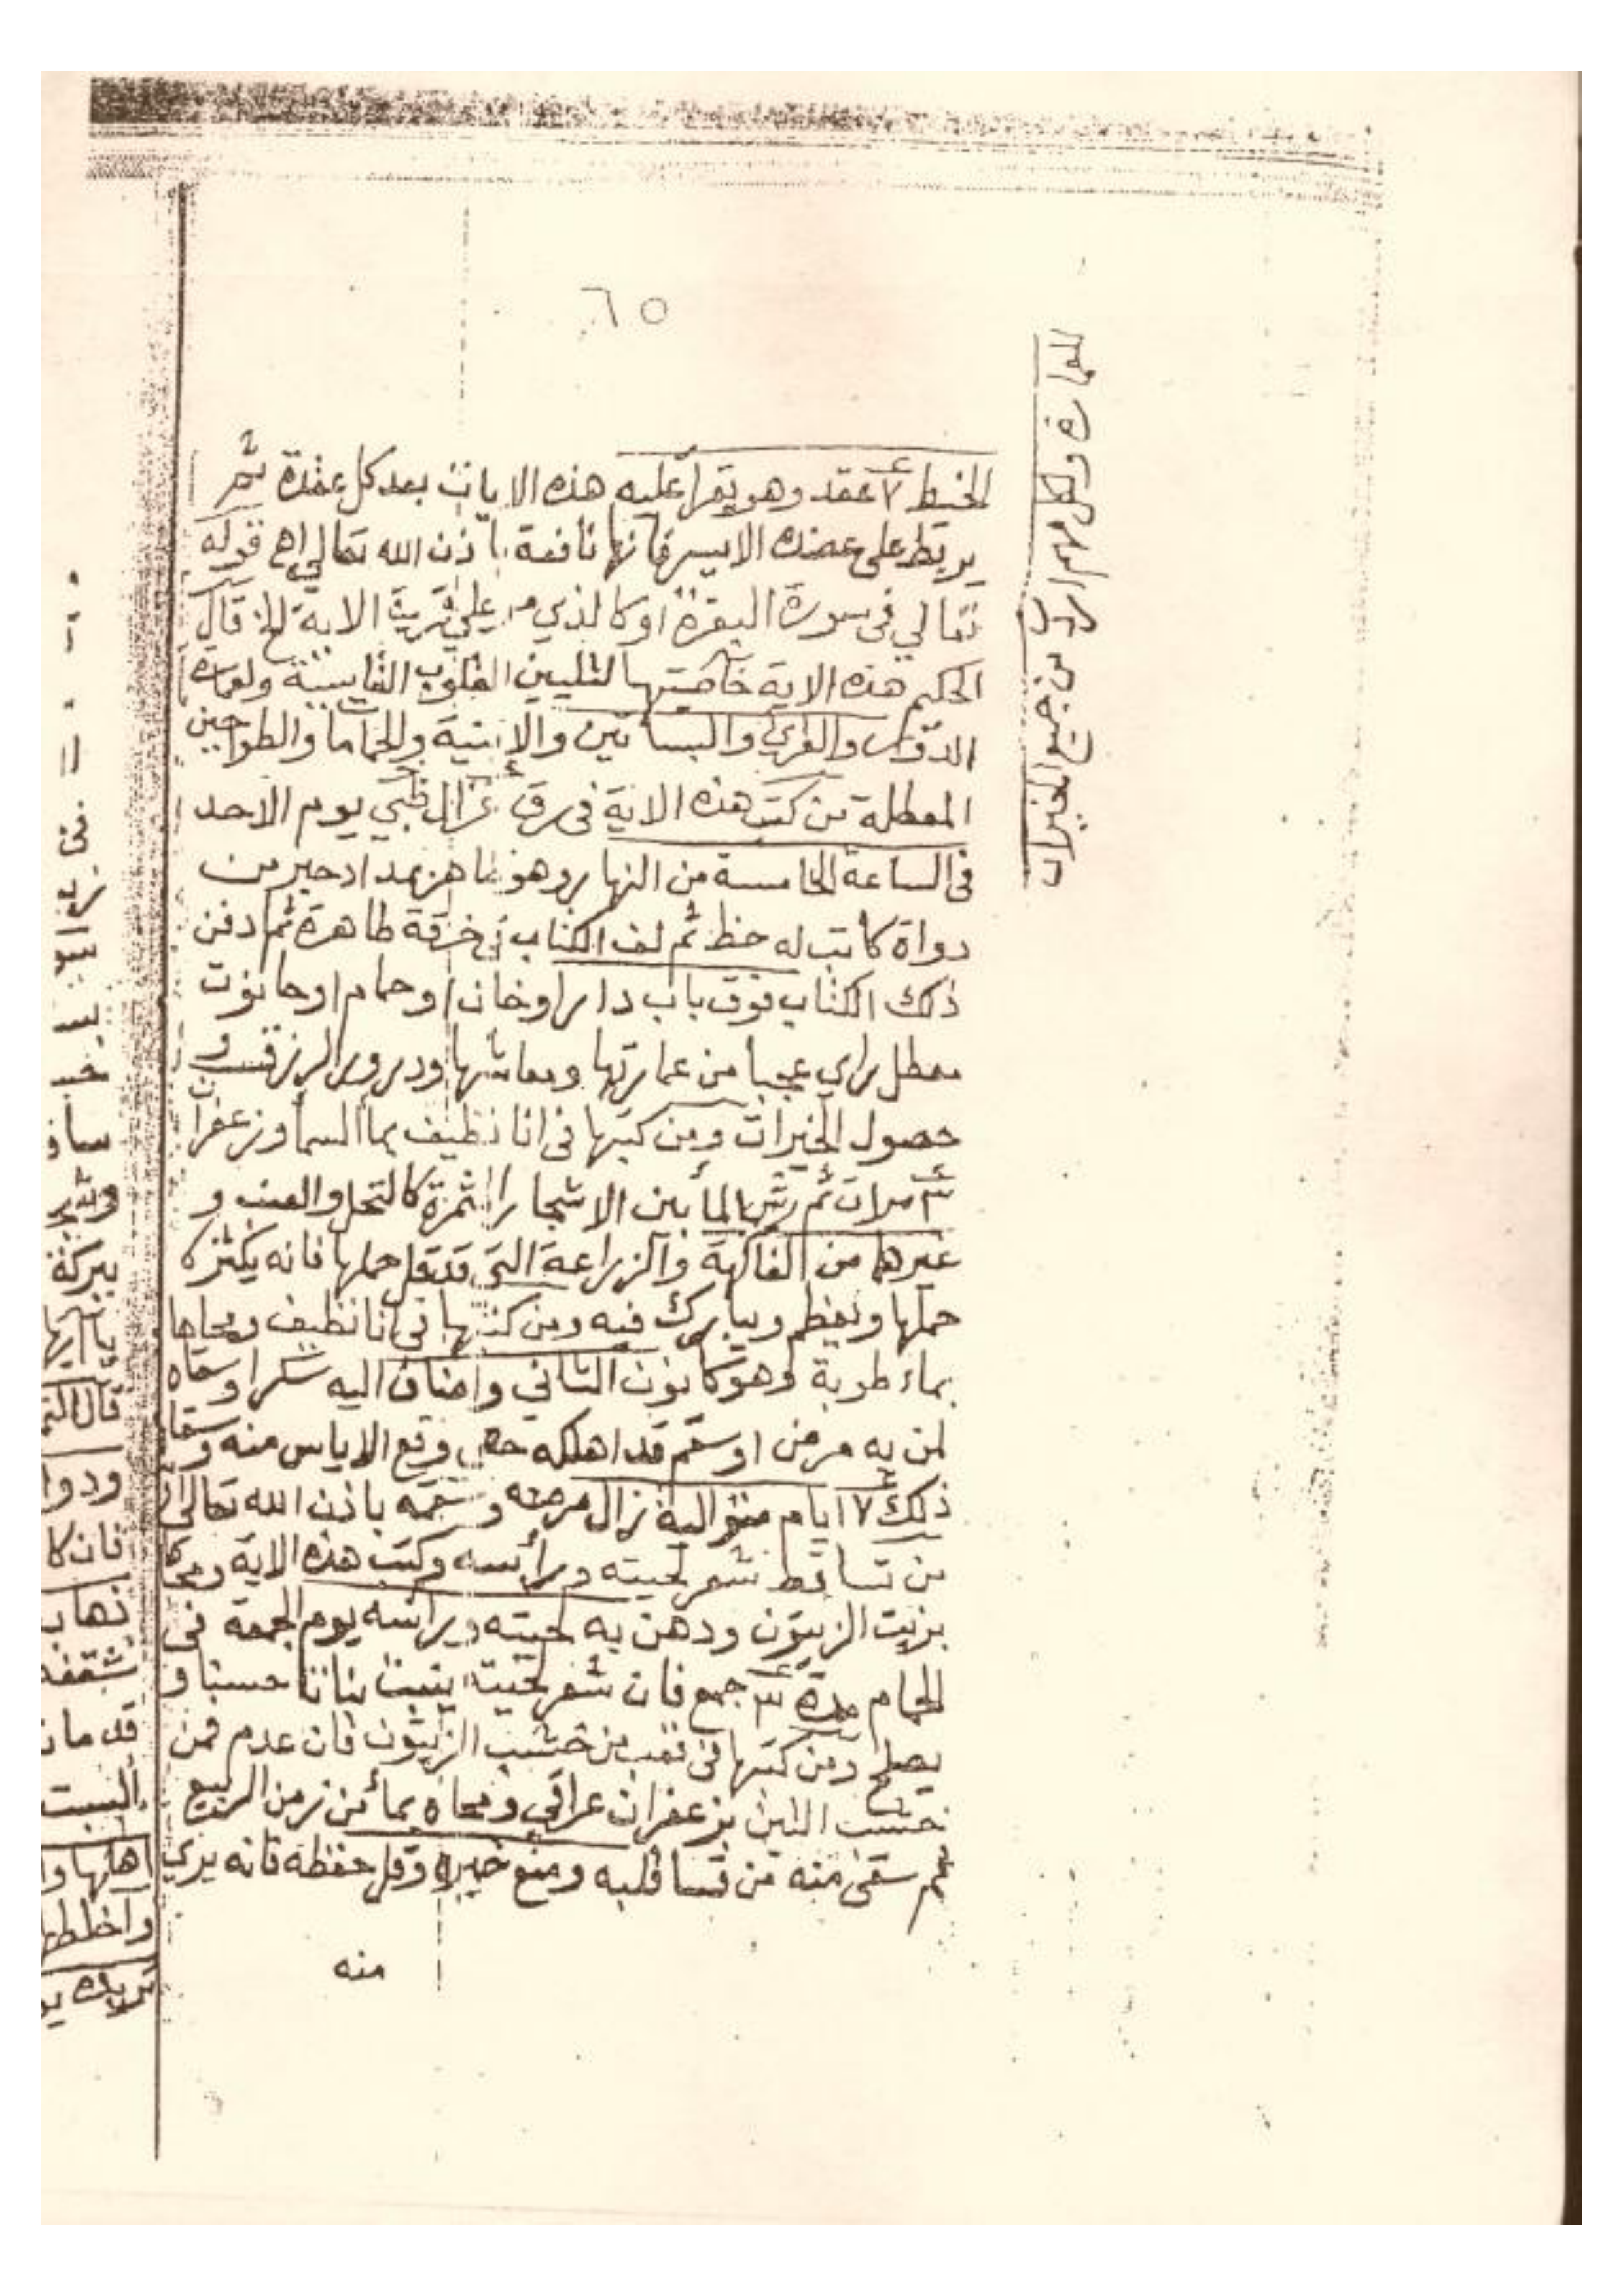 ٦٥
للعمارة ولكل امر من جميع الخيرات
الخيط ٧ عقد وهو يقرأ عليه هذه الايات بعد كل عقدة ثم
يربط على عضده الايسر فانها نافعة باذن الله تعالى اهـ قوله
تعالي في سورة البقرة اوكالذي مر علي قرية الاية الخ قال
الحكيم هذه الاية خاصيتها لتليين القلوب القاسية ولعمارة
الدور والقري والبساتين والابنية والحمامات والطواحين
المعطلة من كتب هذه الاية في رق غزال ظبي يوم الاحد
في الساعة الخامسة من النهار وهو طاهر بمداد حبر من
دواة كاتب له حظ ثم لف الكتاب في خرقة طاهرة ثم دفن
ذلك الكتاب فوق باب دار او خان او حمام او حانوت
معطل راي عجبا من عمارتها ومعاشها ودرور الرزق و
حصول الخيرات ومن كتبها في انا نظيف بماء السما وزعفران
٣ مرات ثم رش الما بين الاشجار المثمرة كالنخل والعنب و
غيرهما من الفاكهة والزراعة التي قد قل حملها فانه يكثر
حملها ويعظم ويبارك فيه ومن كتبها في انا نظيف ومحاها
بماء طوبة وهو كانون الثاني واضاف اليه سكرا وسقاه
لمن به مرض او سقم قد اهلكه حتى وقع الاياس منه وسقاه
ذلك ٧ ايام متوالية زال مرضه وسقمه باذن الله تعالى
من تساقط شعر لحيته وراسه وكتب هذه الاية ومحاها
بزيت الزيتون ودهن به لحيته وراسه يوم الجمعة في
الحمام مدة ٣ جمع فان شعر لحيته ينبت نباتا حسنا و
يصلح ومن كتبها في قعب من خشب الزيتون فان عدم فمن
خشب التين بزعفران عراقي ومحاه بماء من زمن الربيع
ثم سقى منه من قسا قلبه ومنع خيره وقل حفظه فانه يري
منه